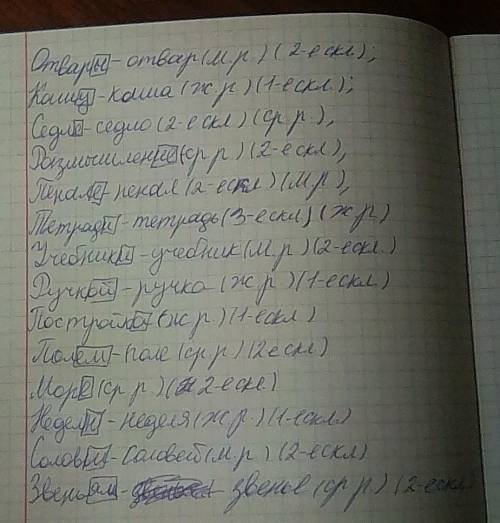 Отвары - отвар (м.р) (2-е скл);
Каши - каша (ж.р) (1-е скл);
Седле - седло (2-е скл) (ср р),
Размышление (ср р) (2-е скл),
Пенале - пенал (2-е скл) (м.р),
Тетради - тетрадь (3-е скл) (ж.р)
Учебники - учебник (м.р) (2-е скл.)
Ручкой - ручка (ж.р) (1-е скл)
Постройка (ж р) (1-е скл)
Полем - поле (ср р) (2е скл)
Море (ср р) (2-е скл)
Недели - неделя (ж.р) (1-е скл)
Соловьи - Соловей (м.р) (2-е скл)
Звеньям - звенье (ср р.) (2-е скл